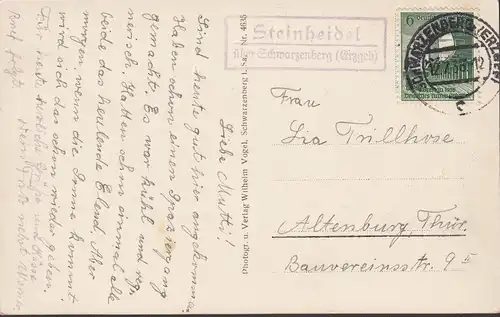 Steinheidel
über Schwarzenberg (Erzgeb)
6
SCHWARZENBERG (ERZGEB)
Liebe Mutti!
Sind heute gut hier angekommen.
Haben schon einen Spaziergang
gemacht. Es war kühl und reg-
nerisch. Hatten schon einmal alle
beide das heulende Elend. Aber
morgen wenn die Sonne kommt
wird sich das schon wieder geben.
Für heute herzliche Grüße und
folgt
Photogr. u. Verlag Wilhelm Vogel, Schwarzenberg i. Sa. Nr. 4635
Frau
Lia Trillhose
Altenburg, Thür.
Bauvereinsstr. 9